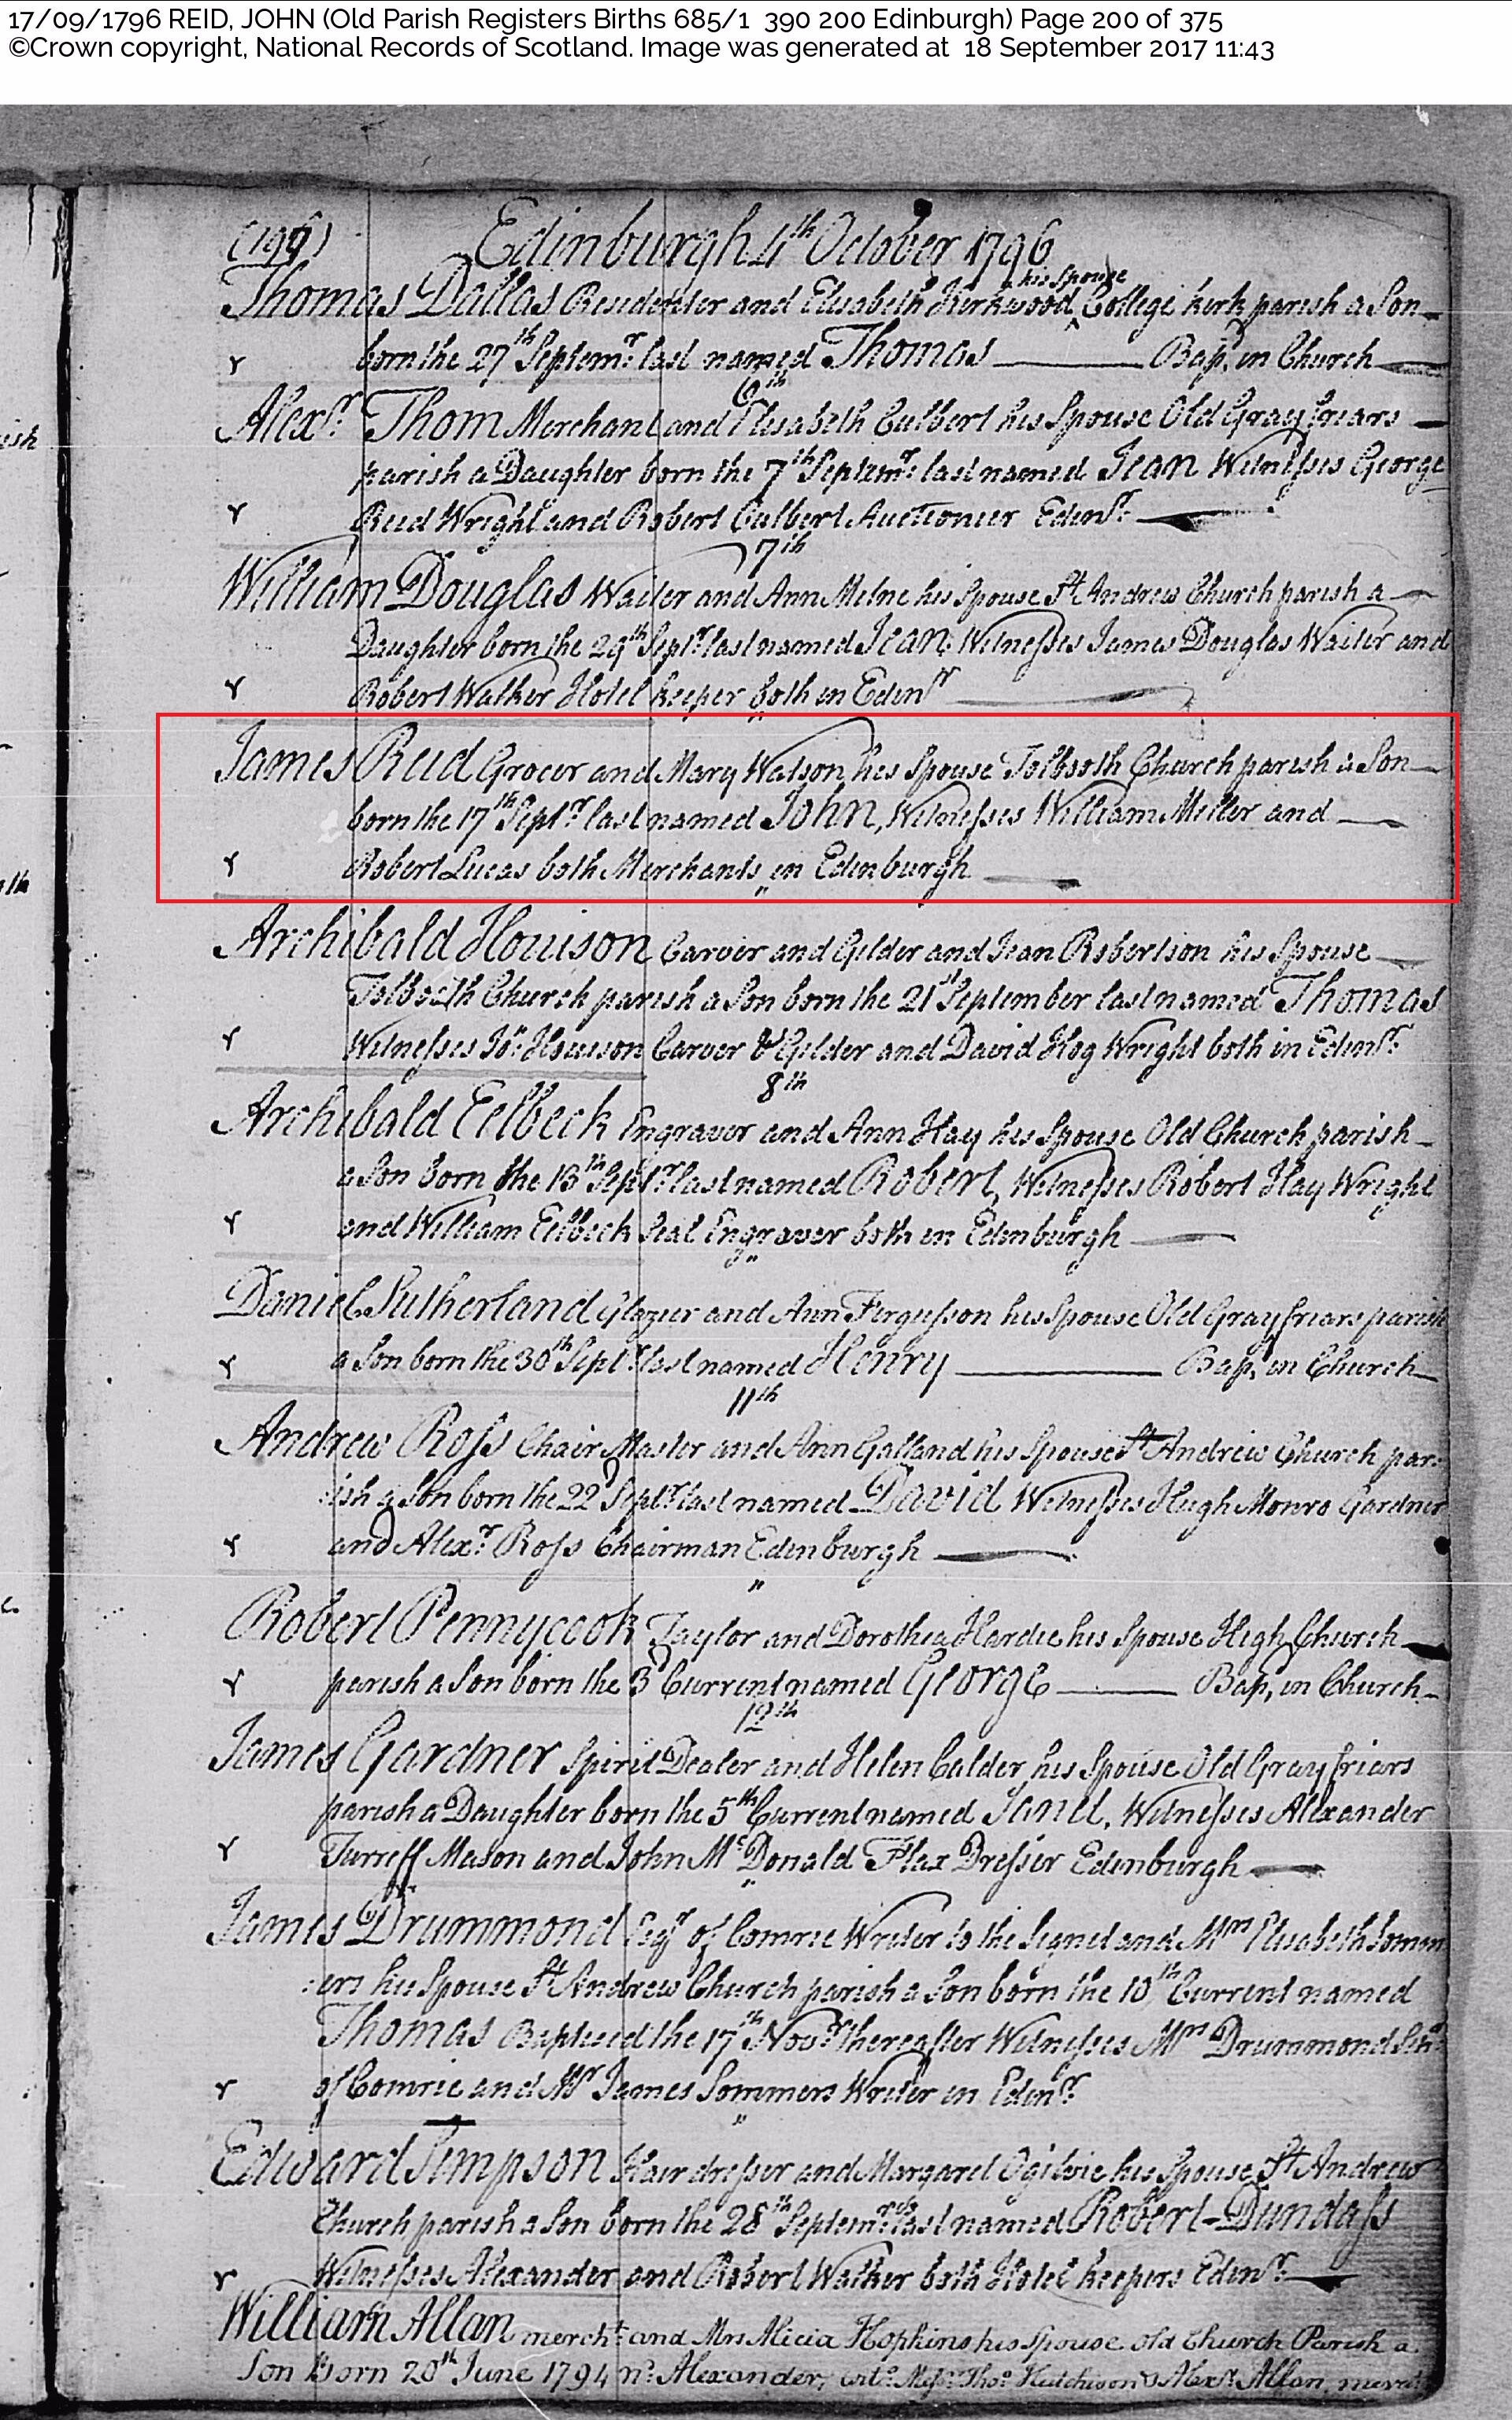 17/09/1796 REID, JOHN (Old Parish Registers Births 685/1 390 200 Edinburgh) Page 200 of 375
©Crown copyright, National Records of Scotland. Image was generated at 18 September 2017 11:43
Edinburgh 4th October 1796
his Spouse
Thomas Dallas Residenter and Elisabeth Kirkwood ‸ College kirk parish a Son
born the 27th Septemr. last named Thomas — Bap. in Church
6th
Alexr. Thom Merchant and Elisabeth Culbert his Spouse Old Gray friars
parish a Daughter born the 7th Septemr. last named Jean Witnesses George
Reid Wright and Robert Culbert Auctioneer Edinr.
7th
William Douglas Waiter and Ann Milne his Spouse St. Andrew Church parish a
Daughter born the 29th Septr. last named Jean. Witnesses James Douglas Waiter and
Robert Walker Hotel keeper both in Edinr
"
James Reid Grocer and Mary Watson his Spouse Tolbooth Church parish a Son
born the 17th Septr. last named John, Witnesses William Miller and
Robert Lucas both Merchants in Edinburgh
"
Archibald Howison Carver and Gilder and Jean Robertson his Spouse
Tolbooth Church parish a Son born the 21st September last named Thomas
Witnesses Jon. Howison Carver & Gilder and David Hog Wright both in Edinr.
8th
Archibald Eelbeck Engraver and Ann Hay his Spouse Old Church parish
a Son born the 13th Septr. last named Robert, Witnesses Robert Hay Wright
and William Eelbeck Seal Engraver both in Edinburgh
"
Daniel Sutherland Glazier and Ann Fergusson his Spouse Old Gray friars parish
a Son born the 30th Septr. last named Henry — Bap. in Church
11th
Andrew Ross Chair Master and Ann Galland his Spouse St Andrew Church par-
:ish a Son born the 22d Septr. last named David Witnesses Hugh Monro Gardner
and Alexr. Ross Chairman Edinburgh
"
Robert Pennycook Taylor and Dorothea Hardie his Spouse High Church
parish a Son born the 3d Current named George — Bap. in Church
12th
James Gardner Spirit Dealer and Helen Calder his Spouse Old Gray friars
parish a Daughter born the 5th Current named Janet, Witnesses Alexander
Turreff Mason and John Mc.Donald Flax Dresser Edinburgh
"
James Drummond Esqr. of Comrie Writer to the Signet and Mrs Elisabeth Somm
:ers his Spouse St Andrew Church parish a Son born the 10th Current named
Thomas Baptised the 17th Novr. thereafter Witnesses Mrs Drummond Senr
of Comrie and Mr James Sommers Writer in Edinr.
"
Edward Simpson Hair dresser and Margaret Ogilvie his Spouse St Andrew
Church parish a Son born the 28th Septemr. last named Robert-Dundass
Witnesses Alexander and Robert Walker both Hotel keepers Edinr.
William Allan mercht. and Mrs Alicia Hopkins his spouse old Church Parish a
Son Born 20th June 1794 nd. Alexander, wits. Messrs. Thos. Hutchison & Alexr. Allan, merchts